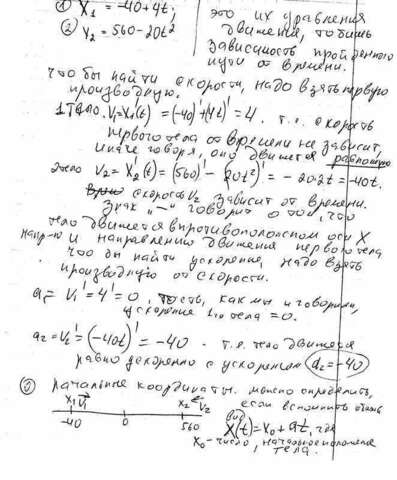 ① X₁ = -40+4t;
② X₂ = 560-20t²
это их уравнения
движения, то бишь
зависимость пройденного
пути от времени.
что бы найти скорости, надо взять первую
производную.
1 тело. V₁=X₁'(t) = (-40)'+(4t)' = 4. т.е. скорость
первого тела от времени не зависит,
иначе говоря, оно движется равномерно
2 тело V₂=X₂'(t) = (560)' - (20t²)' = -20·2t = -40t.
скорость V₂ зависит от времени.
Знак „-" говорит о том, что
тело движется в противоположном оси X
напр-ю и направлению движения первого тела
что бы найти ускорение, надо взять
производную от скорости.
a₁= V₁' = 4' = 0, то есть, как мы и говорили,
ускорение 1го тела = 0.
a₂ = V₂' = (-40t)' = -40 . т.е. тело движется
равно ускоренно с ускорением a₂ = -40
③ начальные координаты можно определить,
если вспомнить общий
X₁ V₁ X₂ V₂
вид
-40 0 560
X(t) = X₀ + at, где
X₀ - число, начальное положение
тела.